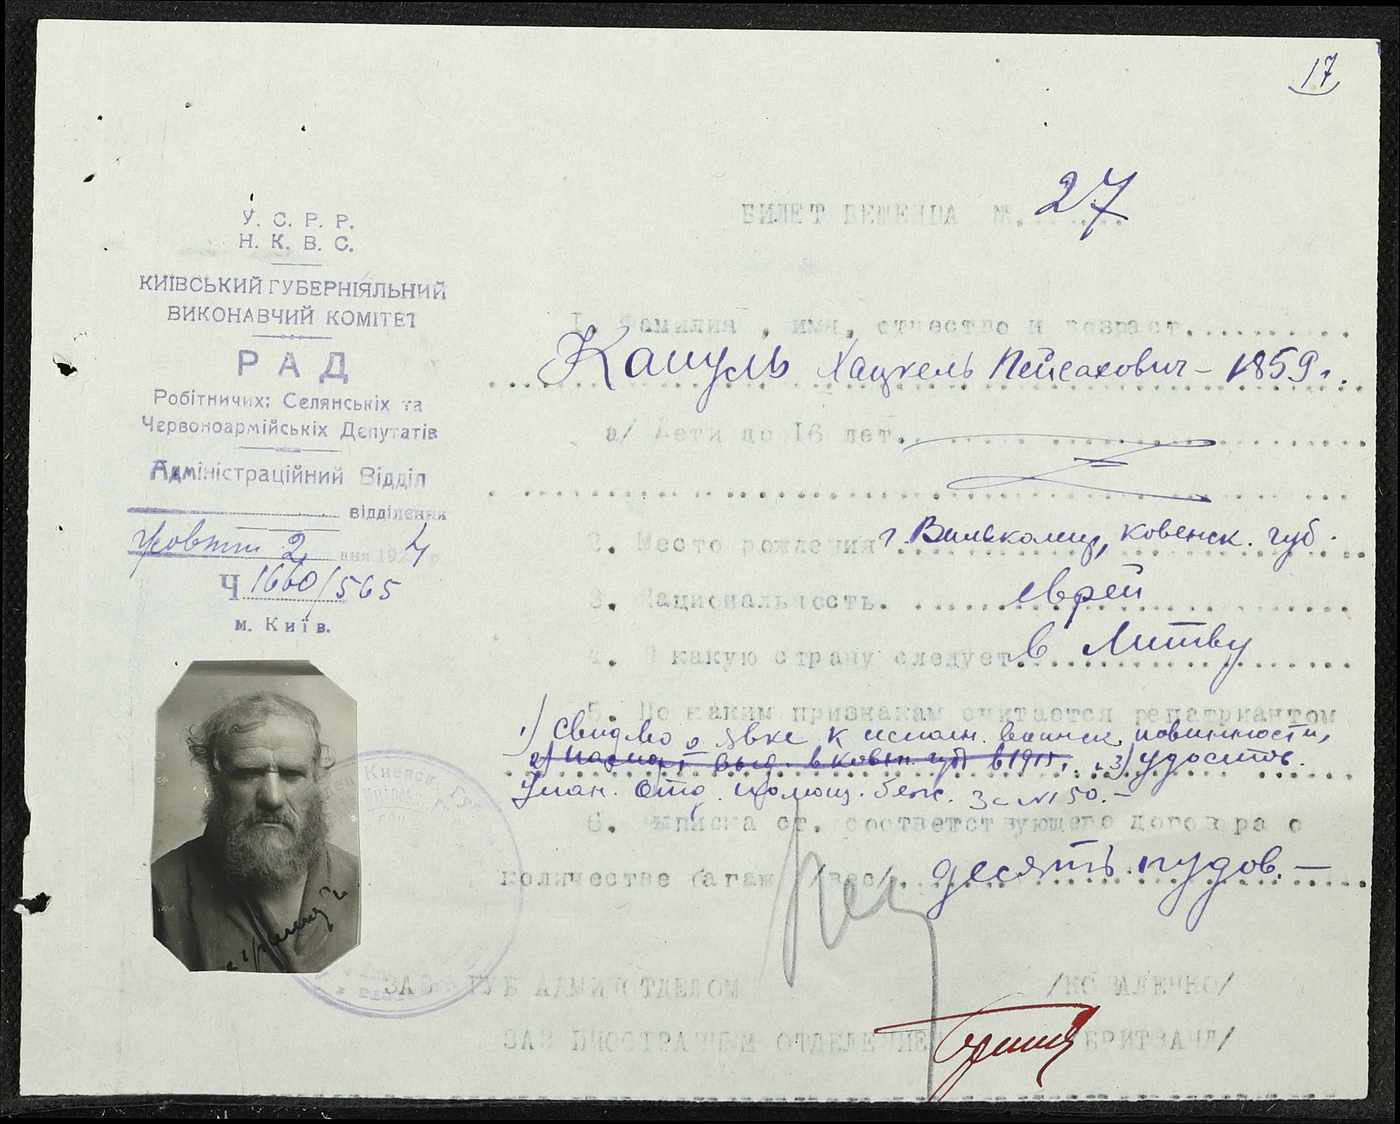 17
У. С. Р. Р.
Н. К. В. С.
КИЇВСЬКИЙ ГУБЕРНІЯЛЬНИЙ
ВИКОНАВЧИЙ КОМІТЕТ
РАД
Робітничих; Селянськіх та
Червоноармійських Депутатів
Адміністраційний Відділ
відділення
Жовтня 2 дня 1924 р
Ч 1660/565
м. Київ.
БИЛЕТ БЕЖЕНЦА №. 27
1. Фамилия, имя, отчество и возраст
Капуль Хацкель Пейсахович - 1859 г.
а/ Дети до 16 лет.
2. Место рождения г. Вилькомир, Ковенск. губ.
3. Национальность. еврей
4. В какую страну следует. в Литву
5. По каким признакам считается репатриантом
1) Свид-во о явке к исполн. воинск. повинности,
2) паспорт выд. в Ковен. губ в 1915 г. и 3) удостов.
Уман. Отд. помощ. беж. за № 50. -
6. Выписка от. соответствующего договора о
количестве багажа /вес/. десять пудов. -
ЗАВ ГУБ АДМИНОТДЕЛОМ /КОВАЛЕНКО/
ЗАВ ИНОСТРАННЫМ ОТДЕЛЕНИЕМ /БРИТВАНД/